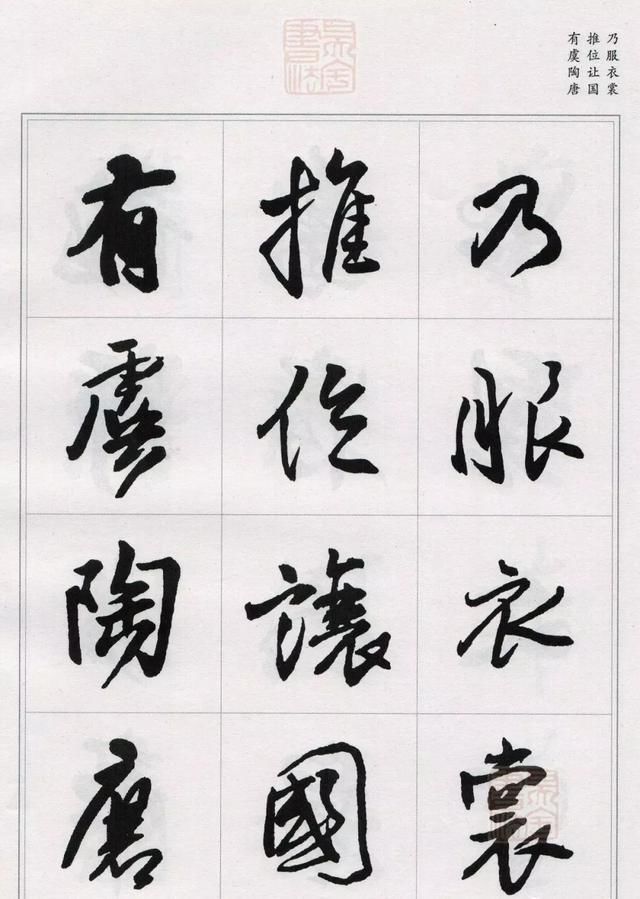 乃服衣裳
推位让国
有虞陶唐
乃服衣裳
推位讓國
有虞陶唐